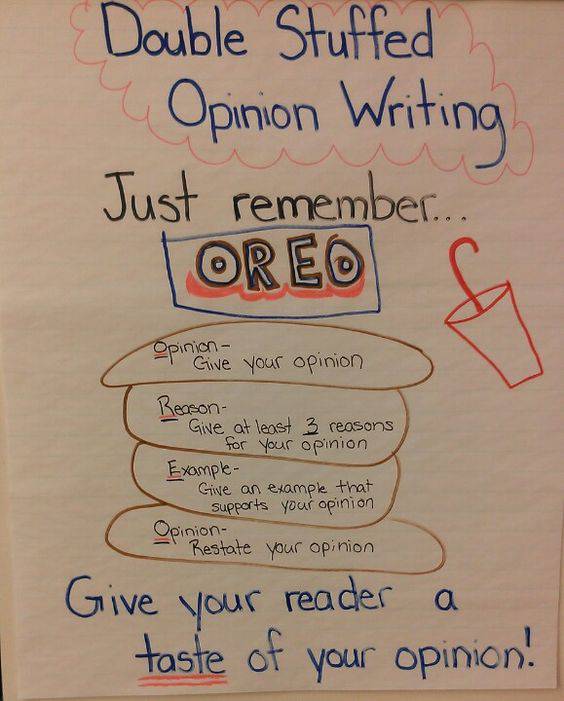 Double Stuffed
Opinion Writing
Just remember...
OREO
Opinion-
Give your opinion
Reason-
Give at least 3 reasons
for your opinion
Example-
Give an example that
supports your opinion
Opinion-
Restate your opinion
Give your reader a
taste of your opinion!